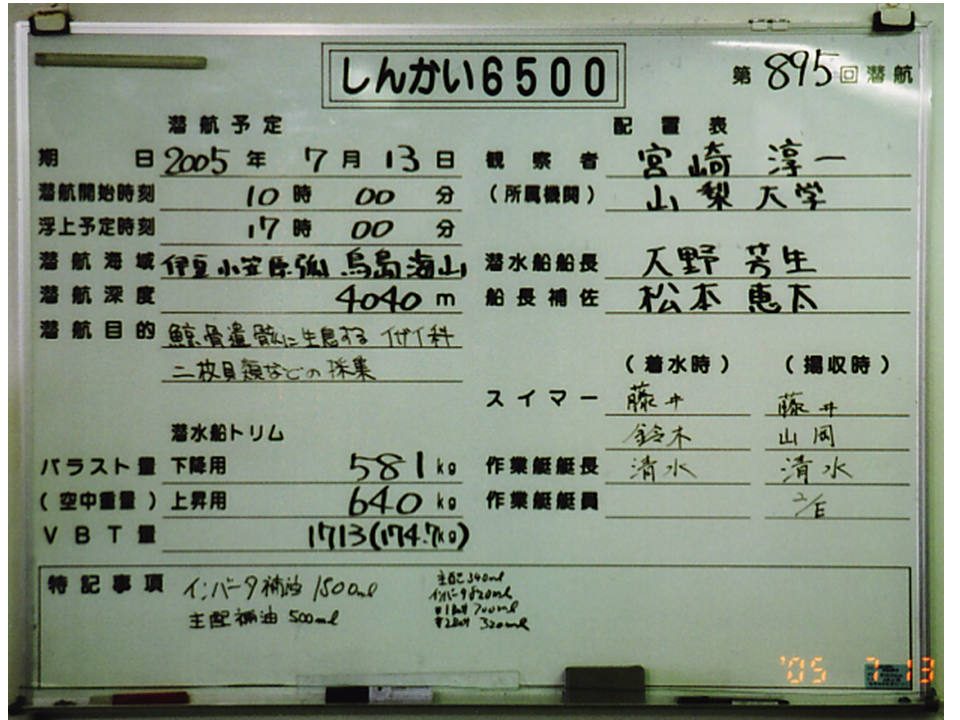 しんかい6500
第 895 回 潜航
潜航予定
配置表
期日 2005 年 7 月 13 日
観察者 宮崎 淳一
潜航開始時刻 10 時 00 分
(所属機関) 山梨大学
浮上予定時刻 17 時 00 分
潜航海域 伊豆小笠原弧 鳥島海山
潜水船船長 天野 芳生
潜航深度 4040 m
船長補佐 松本 恵太
潜航目的 鯨骨遺骸に生息する イガイ科
二枚貝類などの 採集
(着水時) (揚収時)
スイマー 藤井 藤井
鈴木 山岡
潜水船トリム
バラスト量 下降用 581 kg
作業艇艇長 清水 清水
(空中重量) 上昇用 640 kg
作業艇艇員 2/E
VBT量 1713(174.7kg)
特記事項 インバータ補油 1500ml
主配補油 500ml
主配 340ml
インバータ820ml
700ml
320ml
'05 7 13